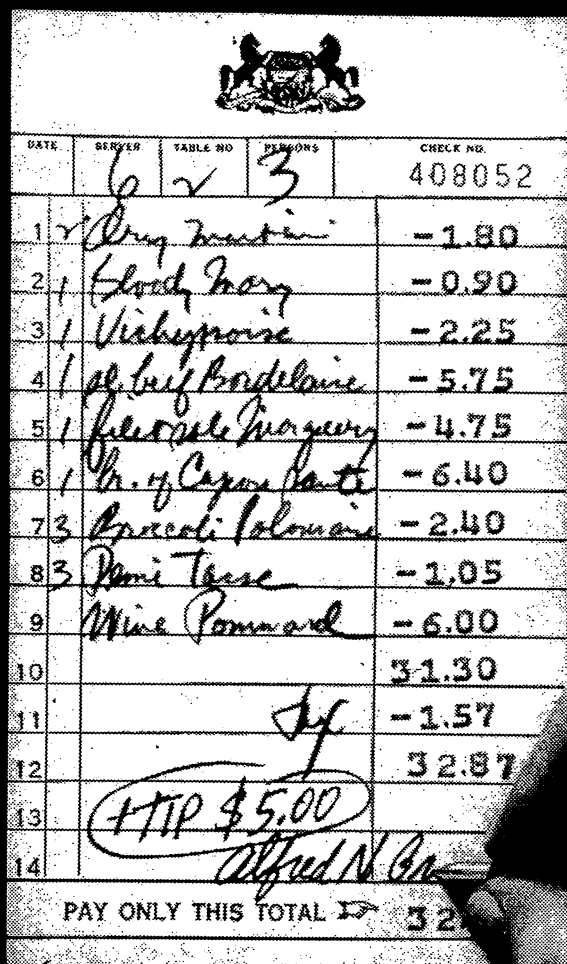 DATE SERVER TABLE NO PERSONS CHECK NO.
6 2 3 408052
1 2 Dry Martini -1.80
2 1 Bloody Mary -0.90
3 1 Vichysoise -2.25
4 1 beef Bordelaise -5.75
5 1 filet sole -4.75
6 1 Br. of Capon -6.40
7 3 Broccoli -2.40
8 3 Demi Tasse -1.05
9 Wine Pommard -6.00
10 31.30
11 Tax -1.57
12 32.87
13 + TIP $5.00
14 Alfred N
PAY ONLY THIS TOTAL 32